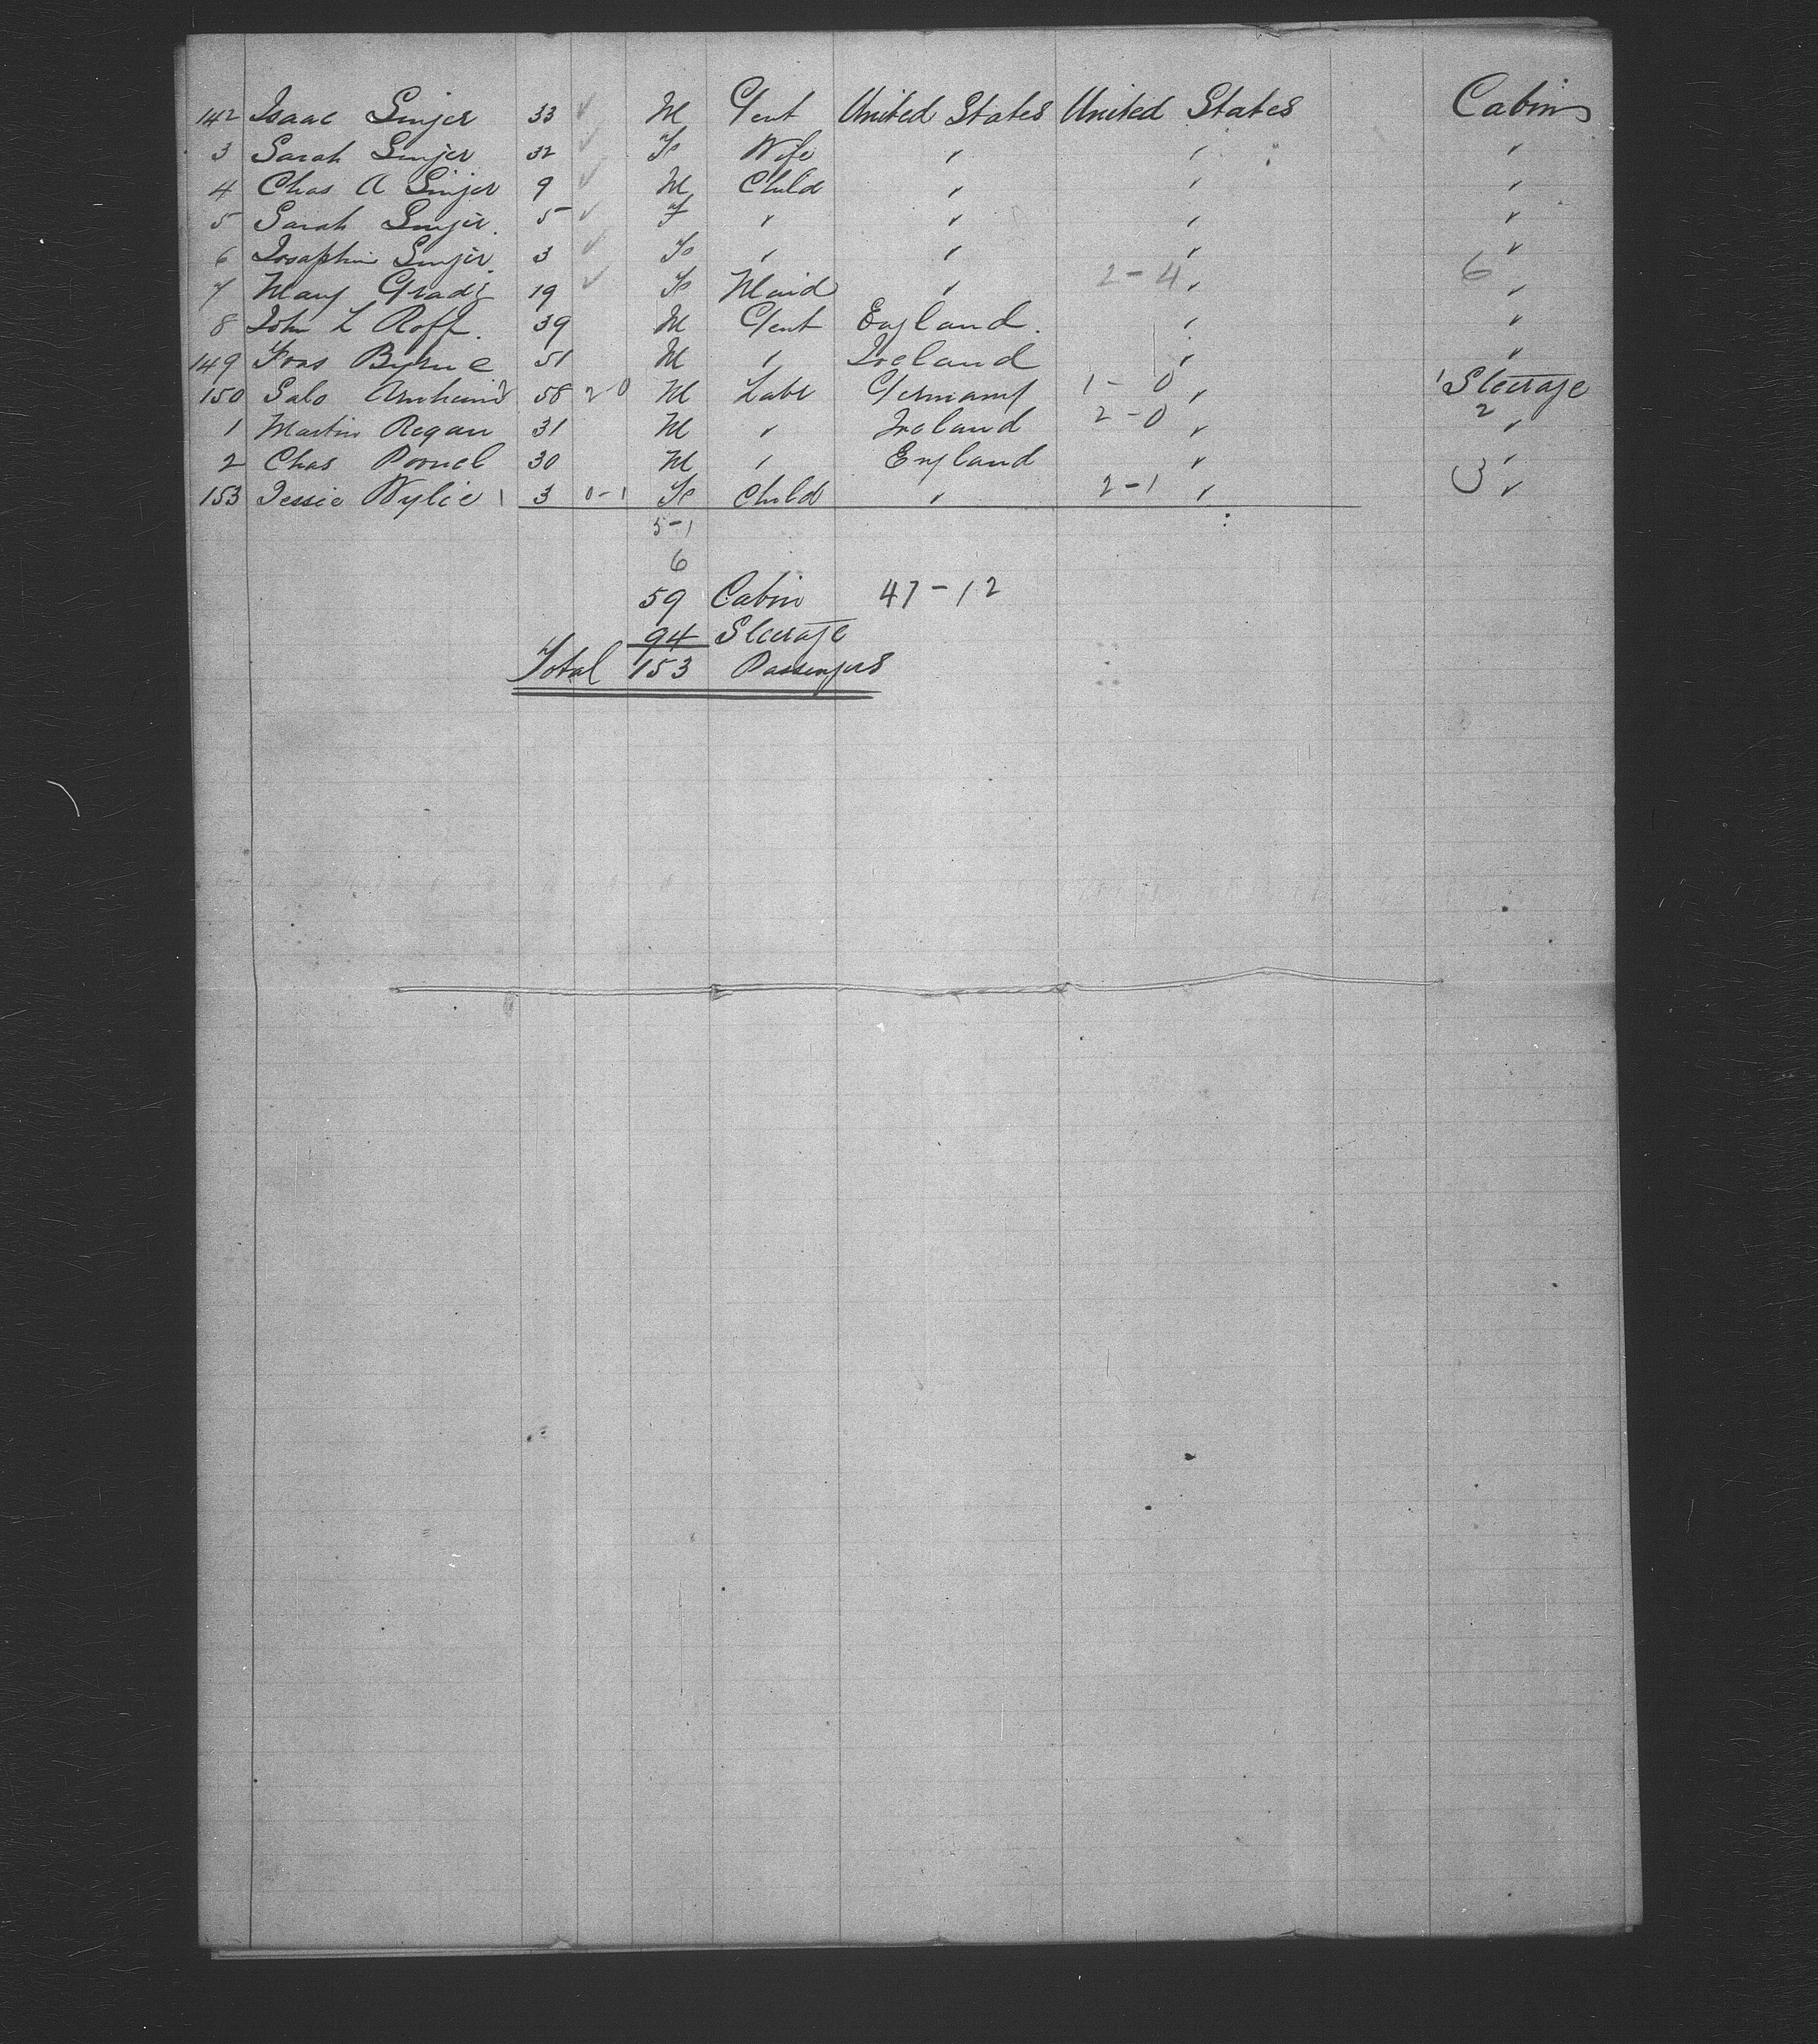 142 Isaac Singer 33 ✓ M Gent United States United States Cabin
3 Sarah Singer 32 ✓ F Wife " " "
4 Chas A Singer 9 ✓ M Child " " "
5 Sarah Singer. 5 ✓ F " " " "
6 Josephin Singer. 3 ✓ F " " " "
7 Mary Grady 19 ✓ F Maid " 2-4 " 6 "
8 John L Roff. 39 M Gent England. " "
149 Fras Byrne 51 M " Ireland " "
150 Salo 58 2-0 M Labr Germany 1-0 " 1 Steerage
1 Martin Regan 31 M " Ireland 2-0 " 2 "
2 Chas 30 M " England " "
153 Jessie Wylie 1 3 0-1 F Child " 2-1 " 3 "
5-1
6
59 Cabin 47-12
94 Steerage
Total 153 Passengers